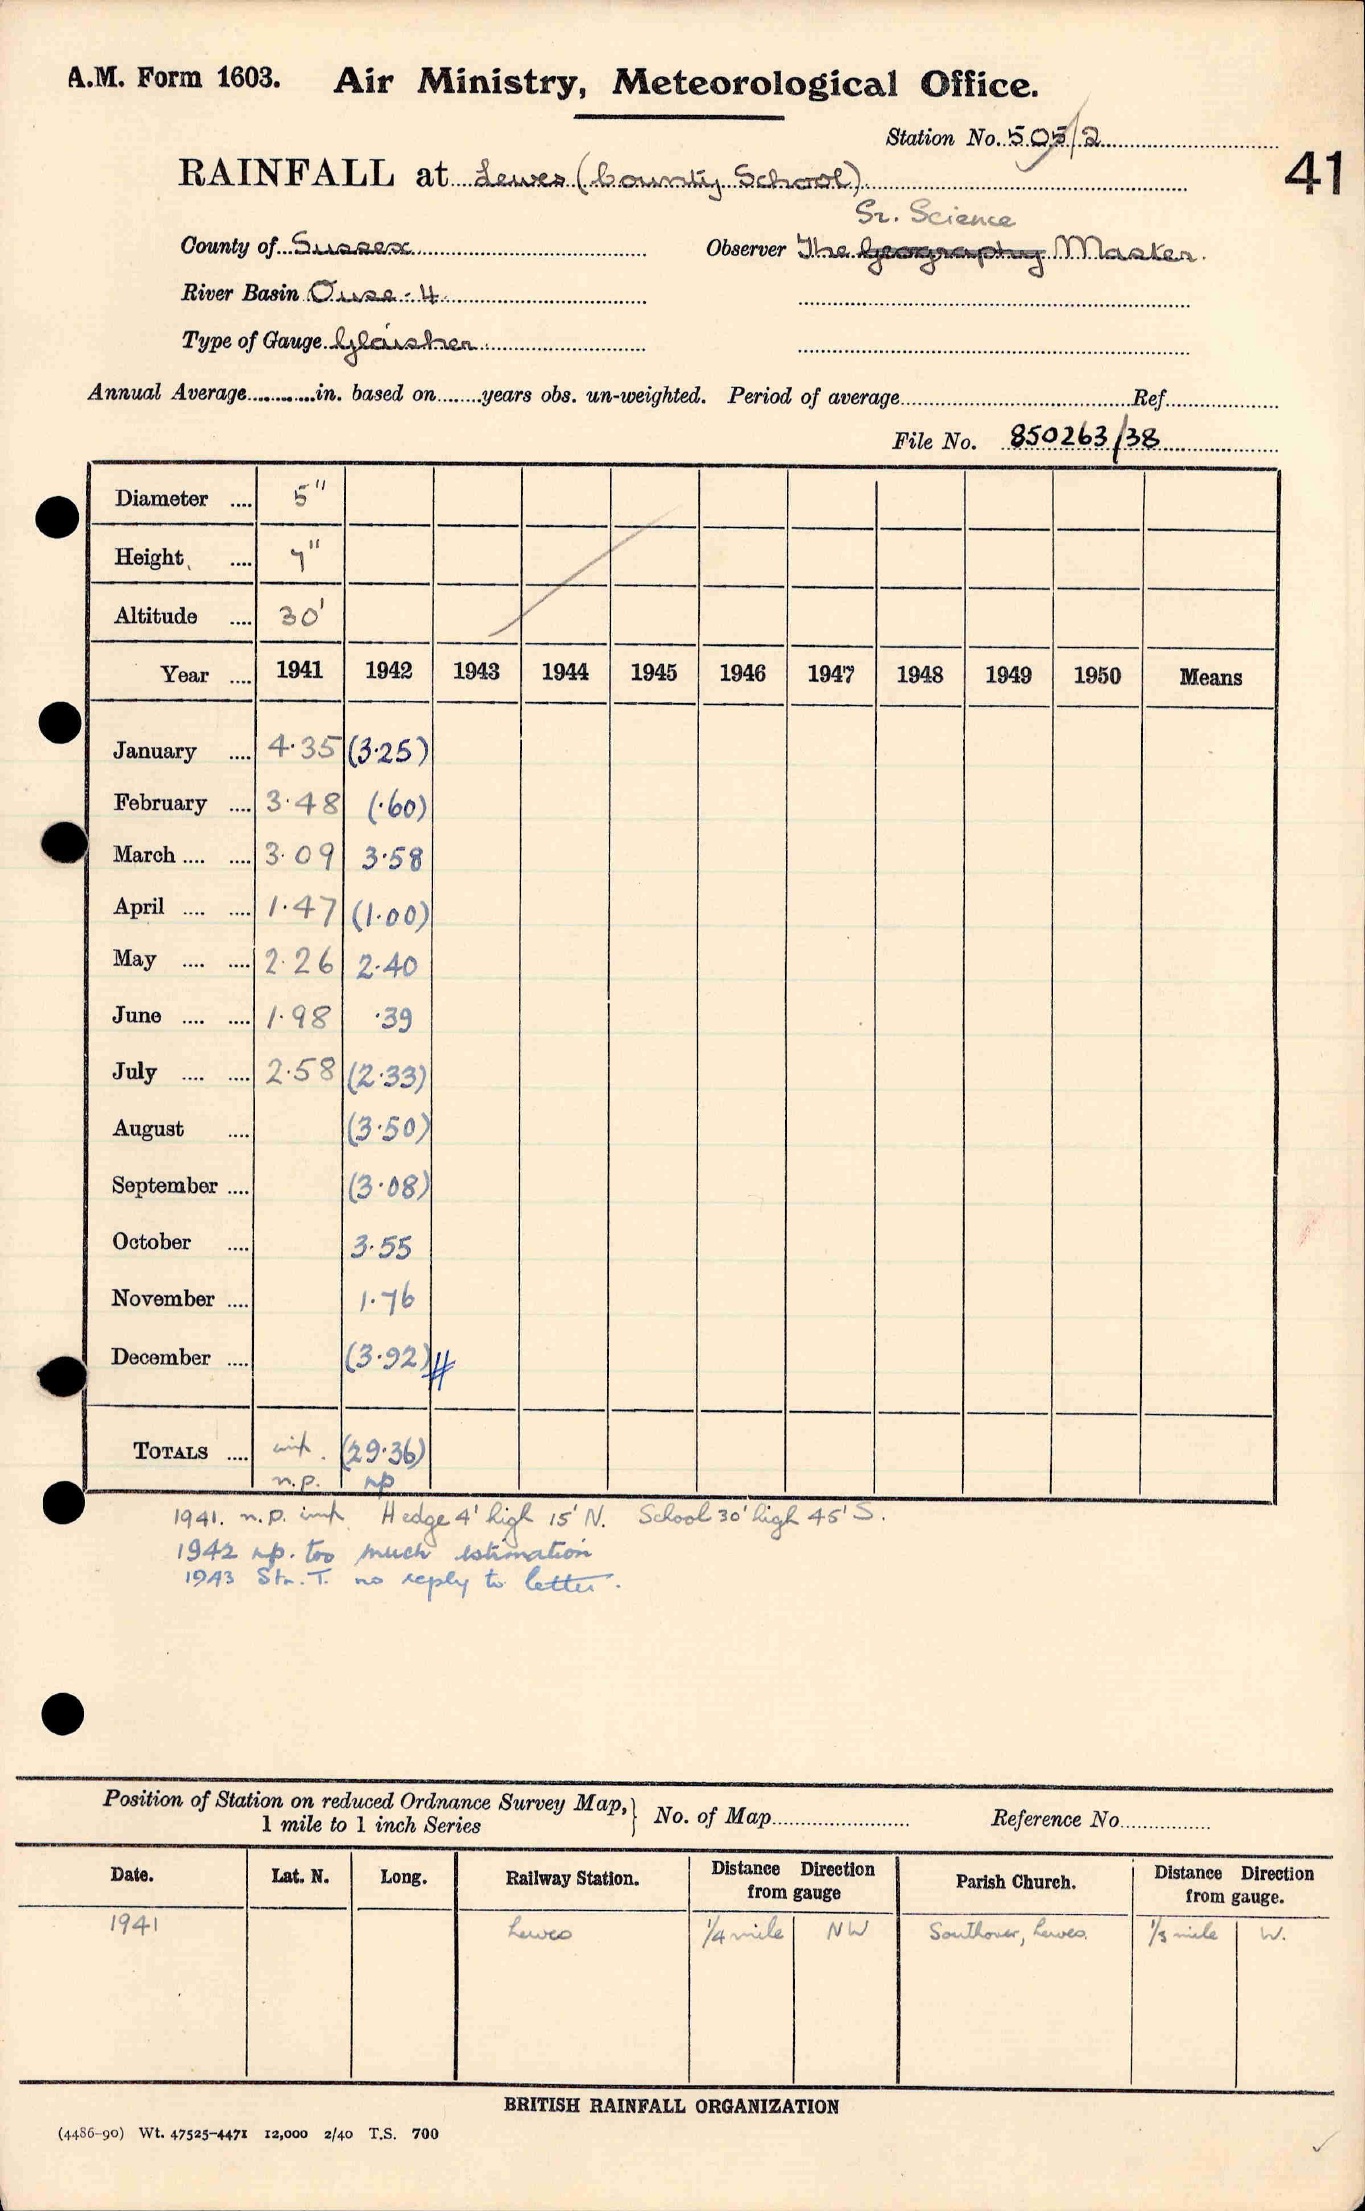 A.M. Form 1603. Air Ministry, Meteorological Office.
Station No. 505/2
41
RAINFALL at Lewes (County School)
Sr. Science
County of Sussex Observer The Geography Master.
River Basin Ouse - 4
Type of Gauge Glaisher
Annual Average............in. based on........years obs. un-weighted. Period of average............Ref............
File No. 850263/38
Diameter .... 5"
Height .... 7"
Altitude .... 30'
Year .... 1941 1942 1943 1944 1945 1946 1947 1948 1949 1950 Means
January .... 4.35 (3.25)
February .... 3.48 (.60)
March .... .... 3.09 3.58
April .... .... 1.47 (1.00)
May .... .... 2.26 2.40
June .... .... 1.98 .39
July .... .... 2.58 (2.33)
August .... (3.50)
September .... (3.08)
October .... 3.55
November .... 1.76
December .... (3.92) #
TOTALS .... imp. (29.36)
n.p. np
1941. n.p. imp. Hedge 4' high 15' N. School 30' high 45' S.
1942 np. too much estimation
1943 Stn. T. no reply to letter.
Position of Station on reduced Ordnance Survey Map,} No. of Map............ Reference No............
1 mile to 1 inch Series
Date. Lat. N. Long. Railway Station. Distance Direction from gauge Parish Church. Distance Direction from gauge.
1941 Lewes 1/4 mile NW Southover, Lewes. 1/3 mile W.
BRITISH RAINFALL ORGANIZATION
(4486-90) Wt. 47525-4471 12,000 2/40 T.S. 700